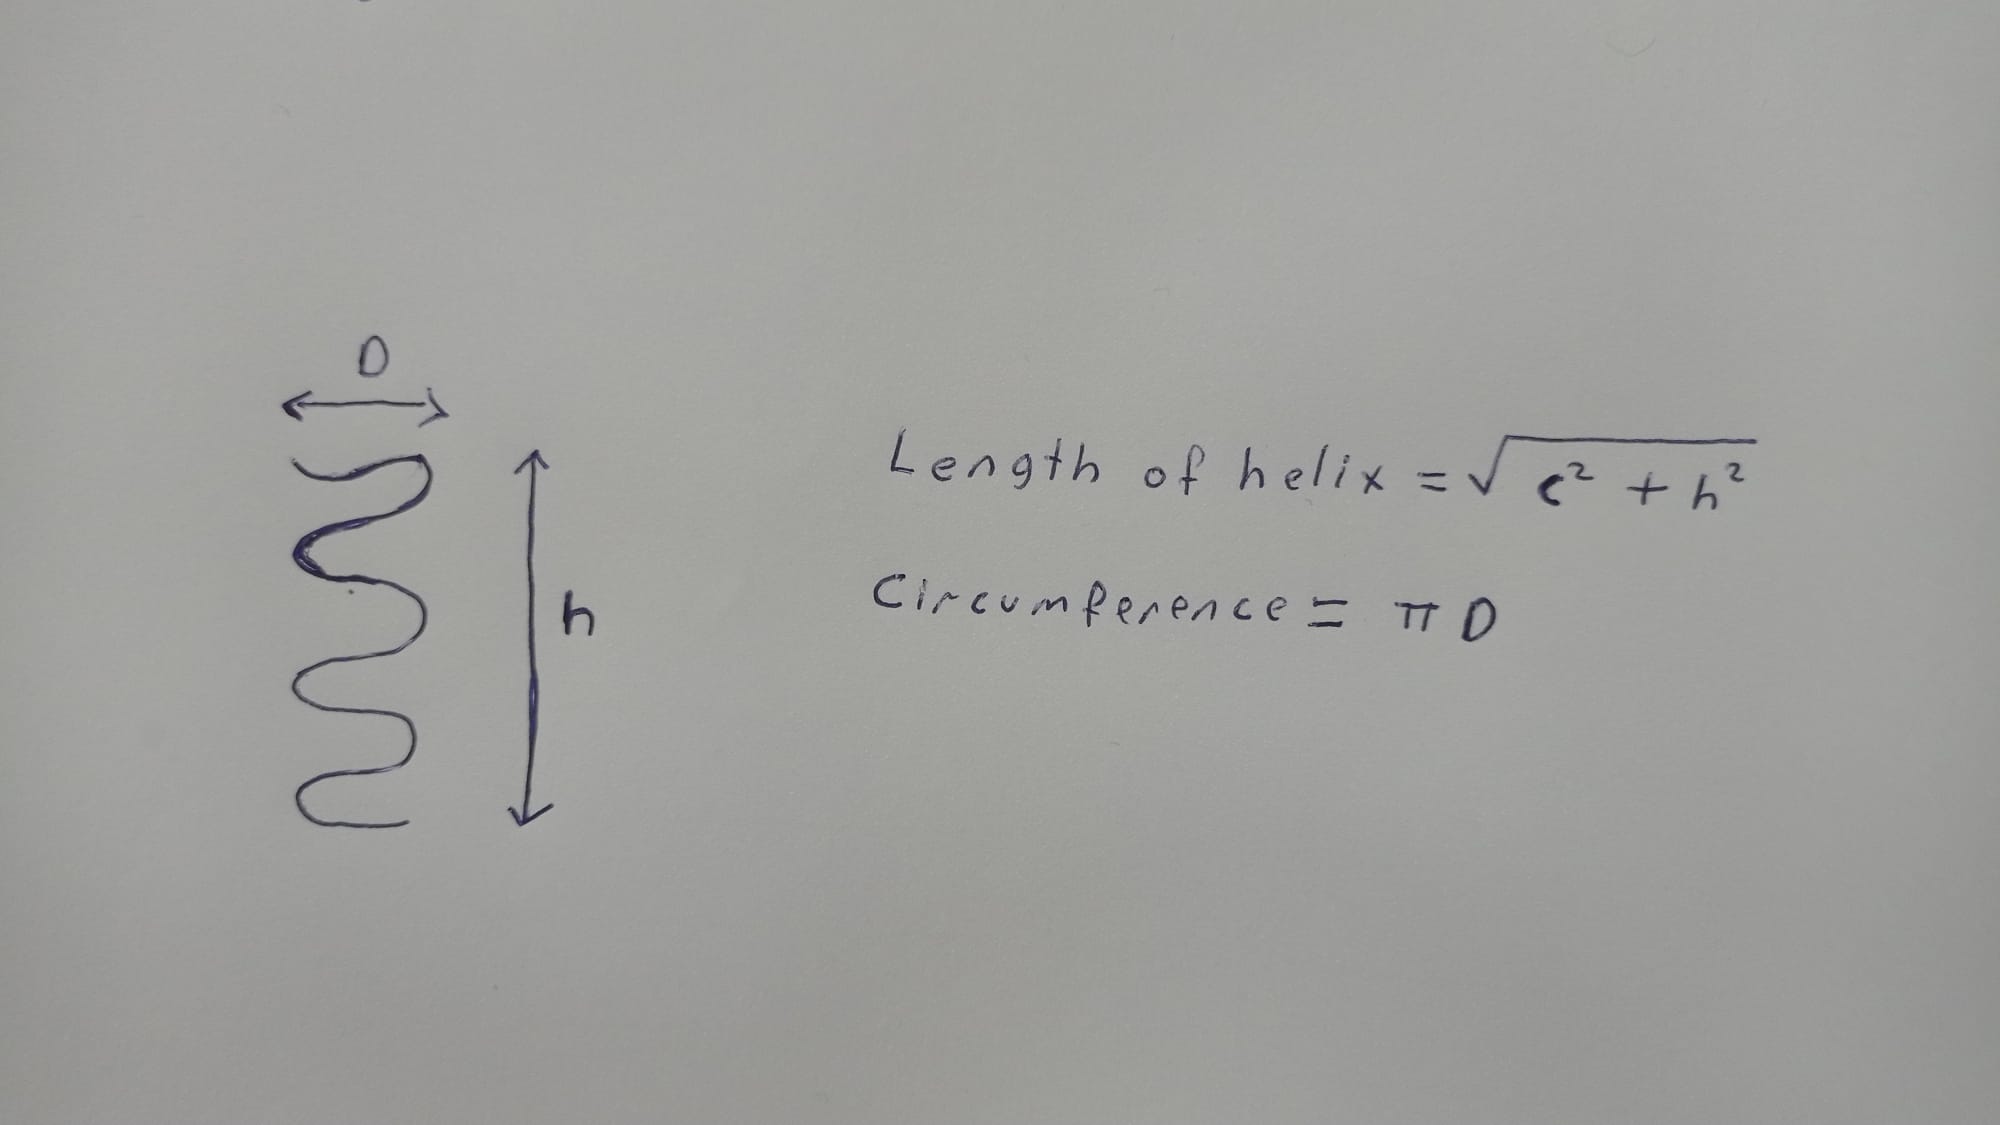 D
h
Length of helix = √(c² + h²)
Circumference = π D